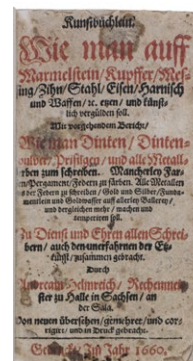 Kunstbüchlein.
Wie man auff
Marmelstein/ Kupffer/ Mes-
sing/ Zihn/ Stahl/ Eisen/ Harnisch
und Waffen/ ꝛc. etzen/ und künst-
lich vergülden soll.
Mit vorgehendem Bericht/
Wie man Dinten/ Dinten-
pulver/ und alle Metall-
zum schreiben. Mancherley Far-
Pergament/ Federn zu färben. Alle Metallen
der Federn zu schreiben/ Gold und Silber/ Funda-
und Goldwasser auff allerley
und dergleichen mehr/ machen und
temperiren soll.
Zu Dienst und Ehren allen Schrei-
bern/ auch den unerfahrnen der Etz-
zusammen gebracht.
Durch
Andream Helmreich/ Rechenmei-
ster zu Halle in Sachsen/ an
der Sala.
Von neuen übersehen/ gemehret/ und cor-
rigiret/ und in Druck gebracht.
Gedruckt/ Im Jahr 1660.